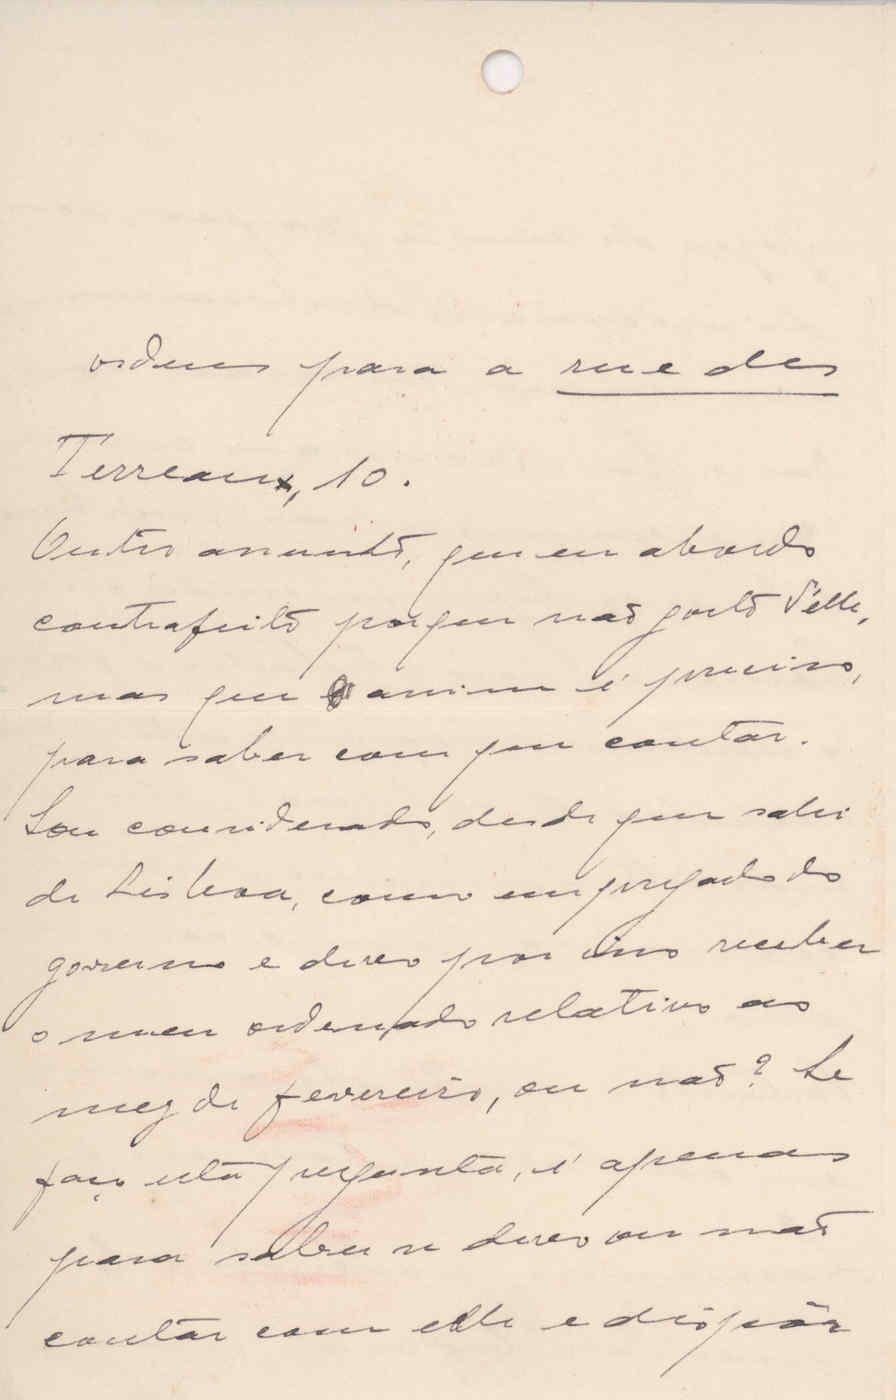 ordens para a rue des
Terreaux, 10.
Outro assumto, que eu abordo
contrafeito porque não gosto d'elle,
mas que assim é preciso,
para saber com que contar.
Sou considerado, desde que sahi
de Lisboa, como empregado do
governo e devo por isso receber
o meu ordenado relativo ao
mez de fevereiro, ou não? Se
faço esta pregunta, é apenas
para saber se devo ou não
contar com elle e dispôr